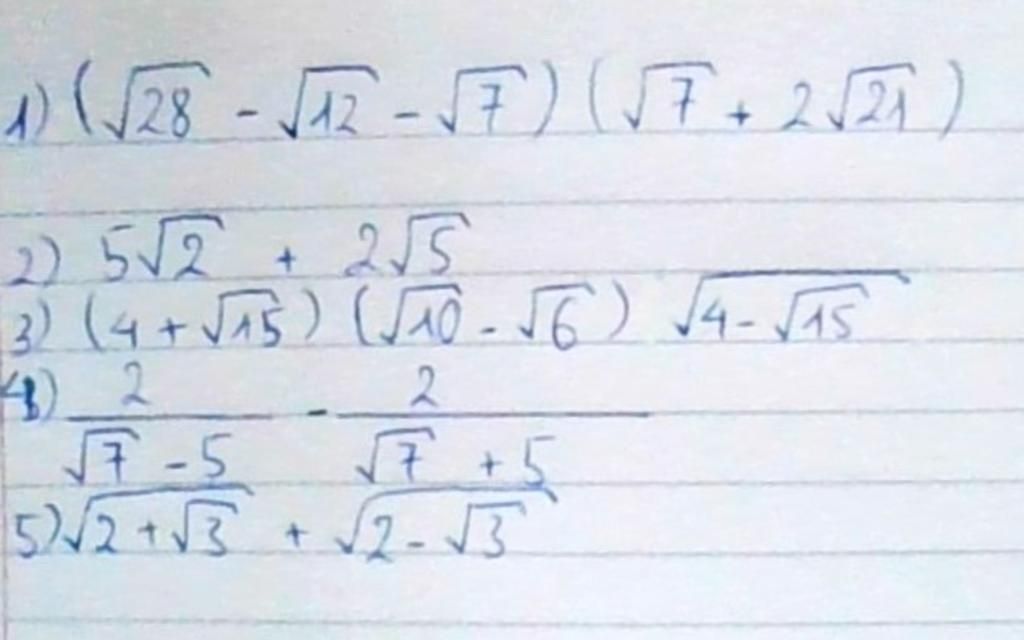 1) (√28 - √12 - √7) (√7 + 2√21)
2) 5√2 + 2√5
3) (4 + √15) (√10 - √6) √(4 - √15)
4) 2/(√7 - 5) - 2/(√7 + 5)
5) √(2 + √3) + √(2 - √3)